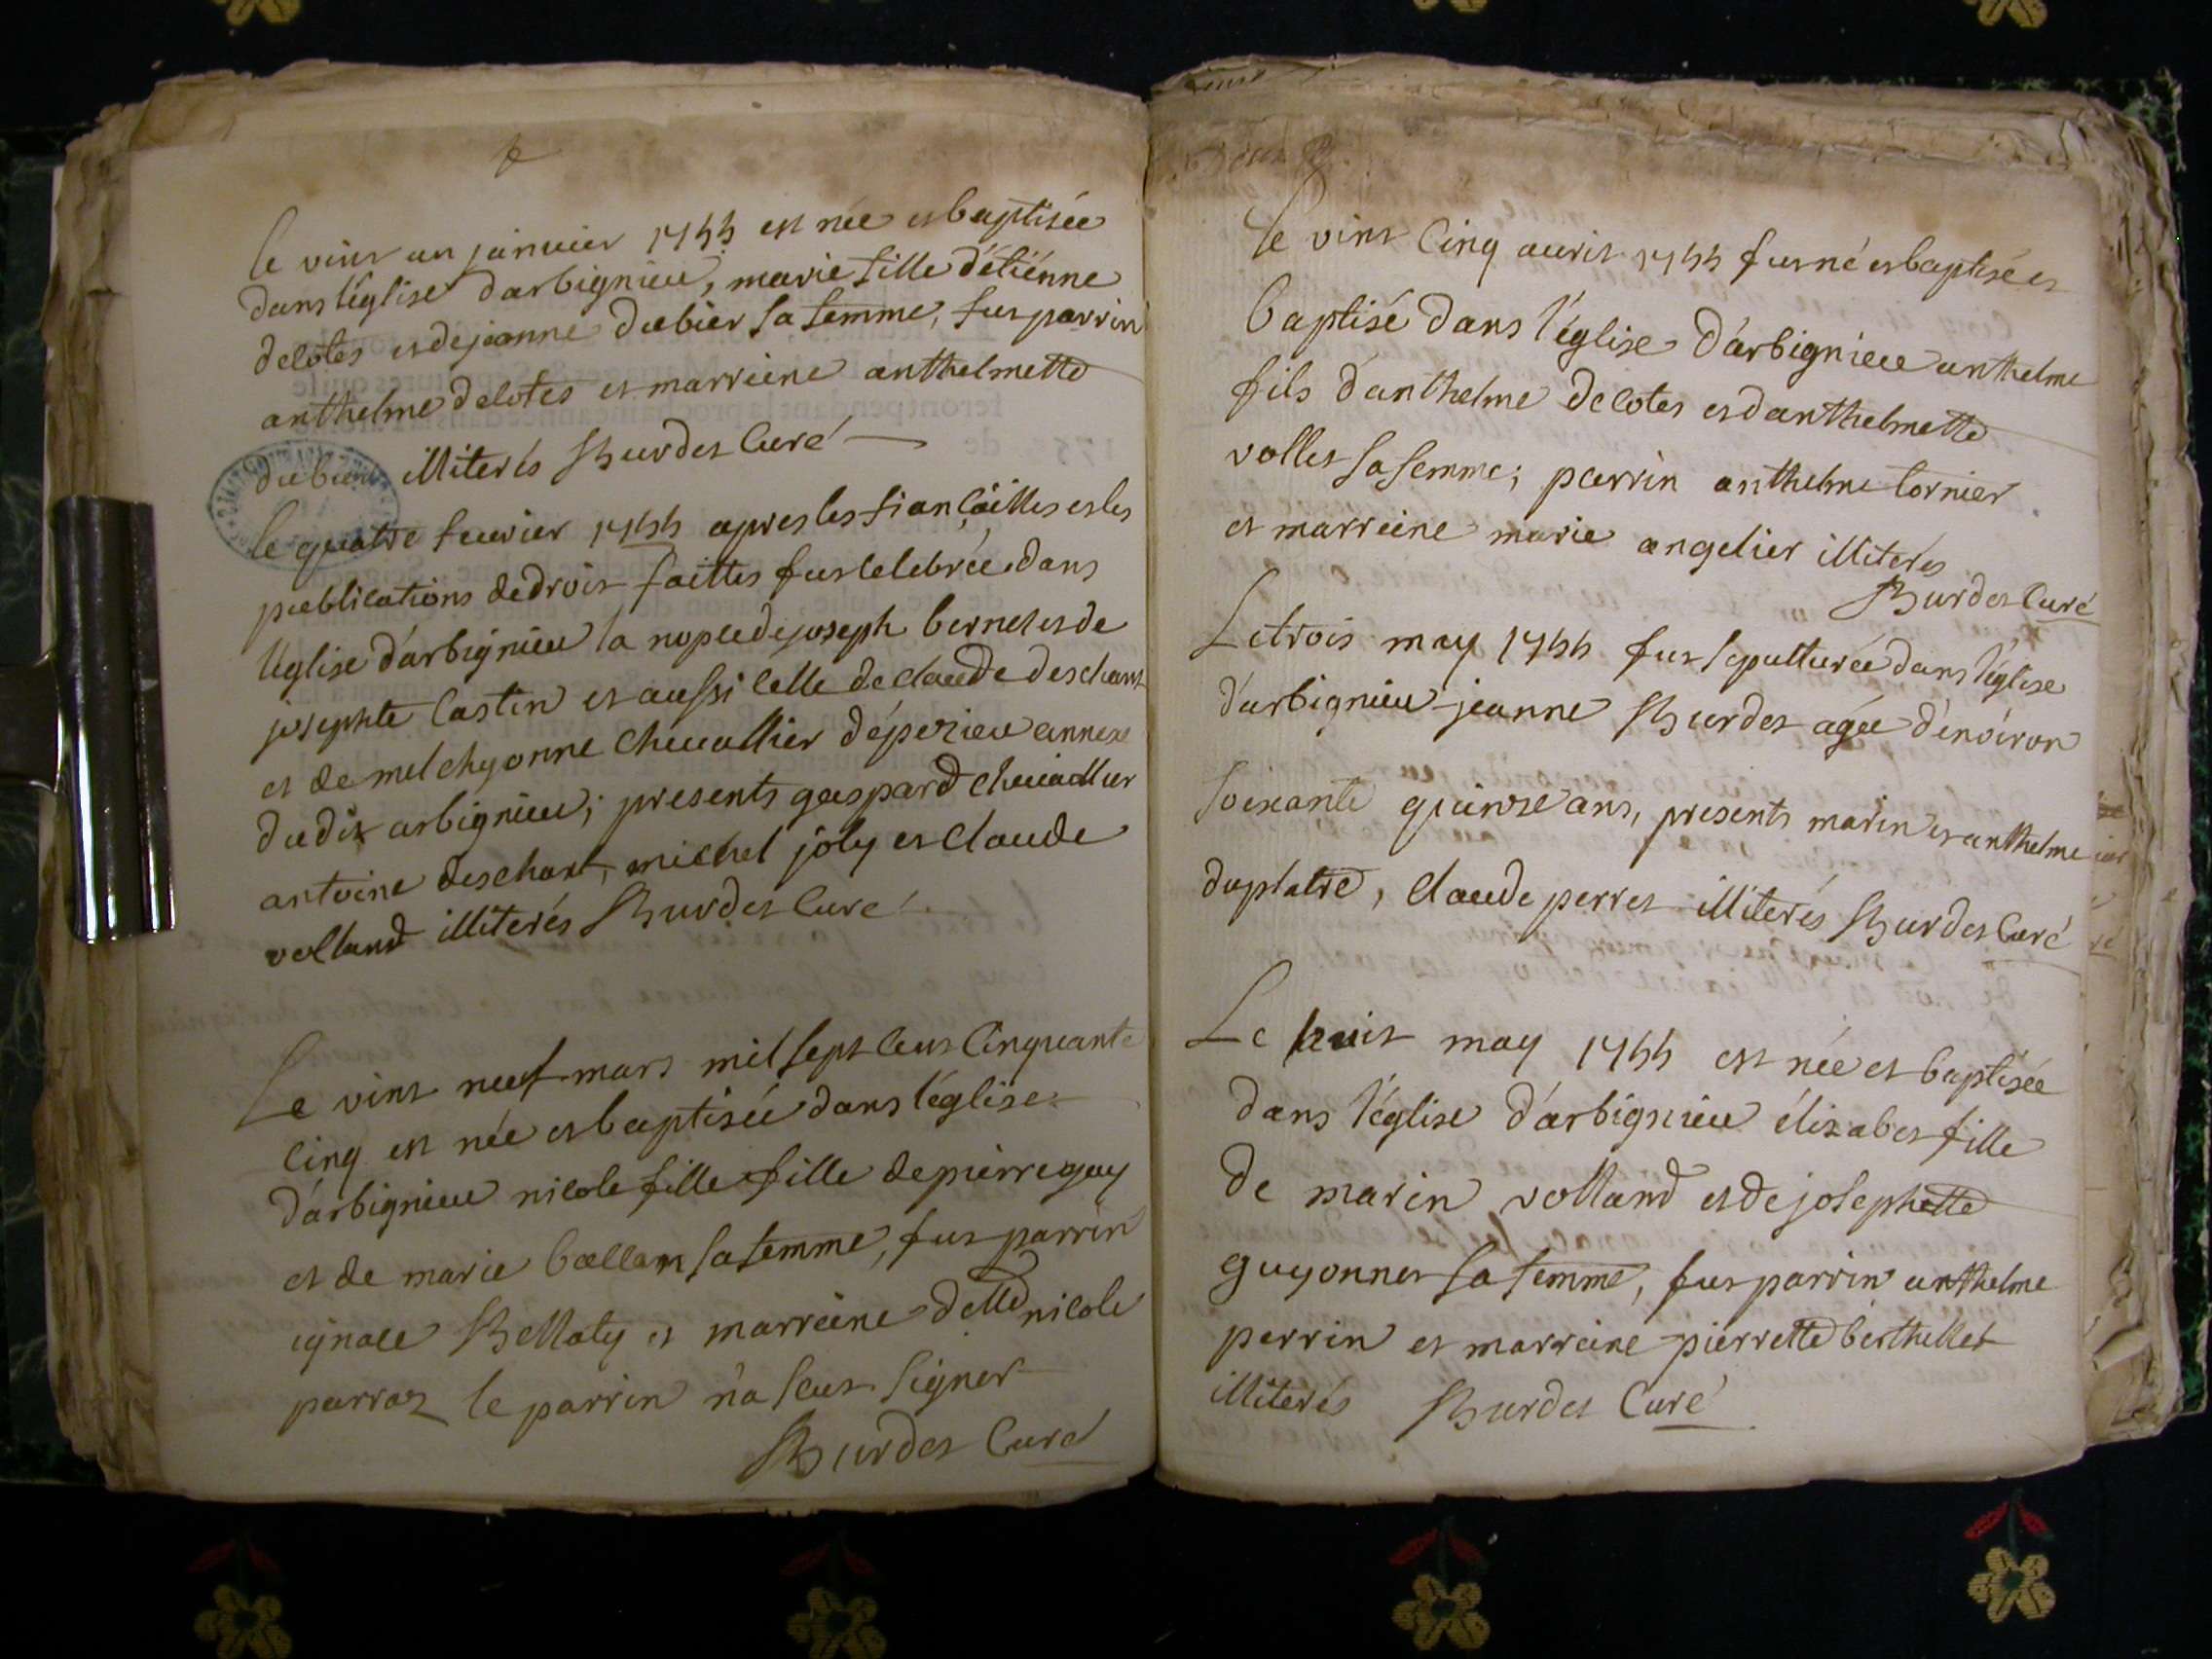 le vint un janvier 1755 est née et baptisée
dans l'église d'arbignieu, marie fille d'étiénne
delotes et de jeanne dubier sa femme, fut parrin
anthelme delotes et marreine anthelmette
dubier illiterés Burdet Curé
le quatre feuvrier 1755 apres les fiançailles et les
publications de droit faittes fut celebrée dans
l'église d'arbignieu la nopce de joseph bernet et de
josephte Castin et aussi celle de claude deschant
et de melchyonne chevallier d'éperieu annexe
du dit arbignieu; presents gaspard chevallier
antoine deschant, michel joly et Claude
volland illiterés Burdet Curé
Le vint neuf mars mil sept cent Cinquante
Cinq est née et baptisée dans l'église
d'arbignieu nicole fille fille de pierre guy
et de marie ballam sa femme, fut parrin
ignace Bellaty et marreine delle nicole
parraz le parrin n'a sceut signer
Burdet Curé
le vint Cinq avrit 1755 fut né et baptisé et
baptisé dans l'église d'arbignieu anthelme
fils d'anthelme delotes et d'anthelmette
vollet sa femme; parrin anthelme tornier
et marreine marie angelier illiterés
Burdet Curé
Le trois may 1755 fut sepulturée dans l'église
d'arbignieu jeanne Burdet agée d'environ
soixante quinze ans, presents marin et anthelme
duplatre, Claude perret illiterés Burdet Curé
Le huit may 1755 est née et baptisée
dans l'église d'arbignieu élizabet fille
de marin volland et de josephette
guyonnet sa femme, fut parrin anthelme
perrin et marreine pierrette berthellet
illiterés Burdet Curé